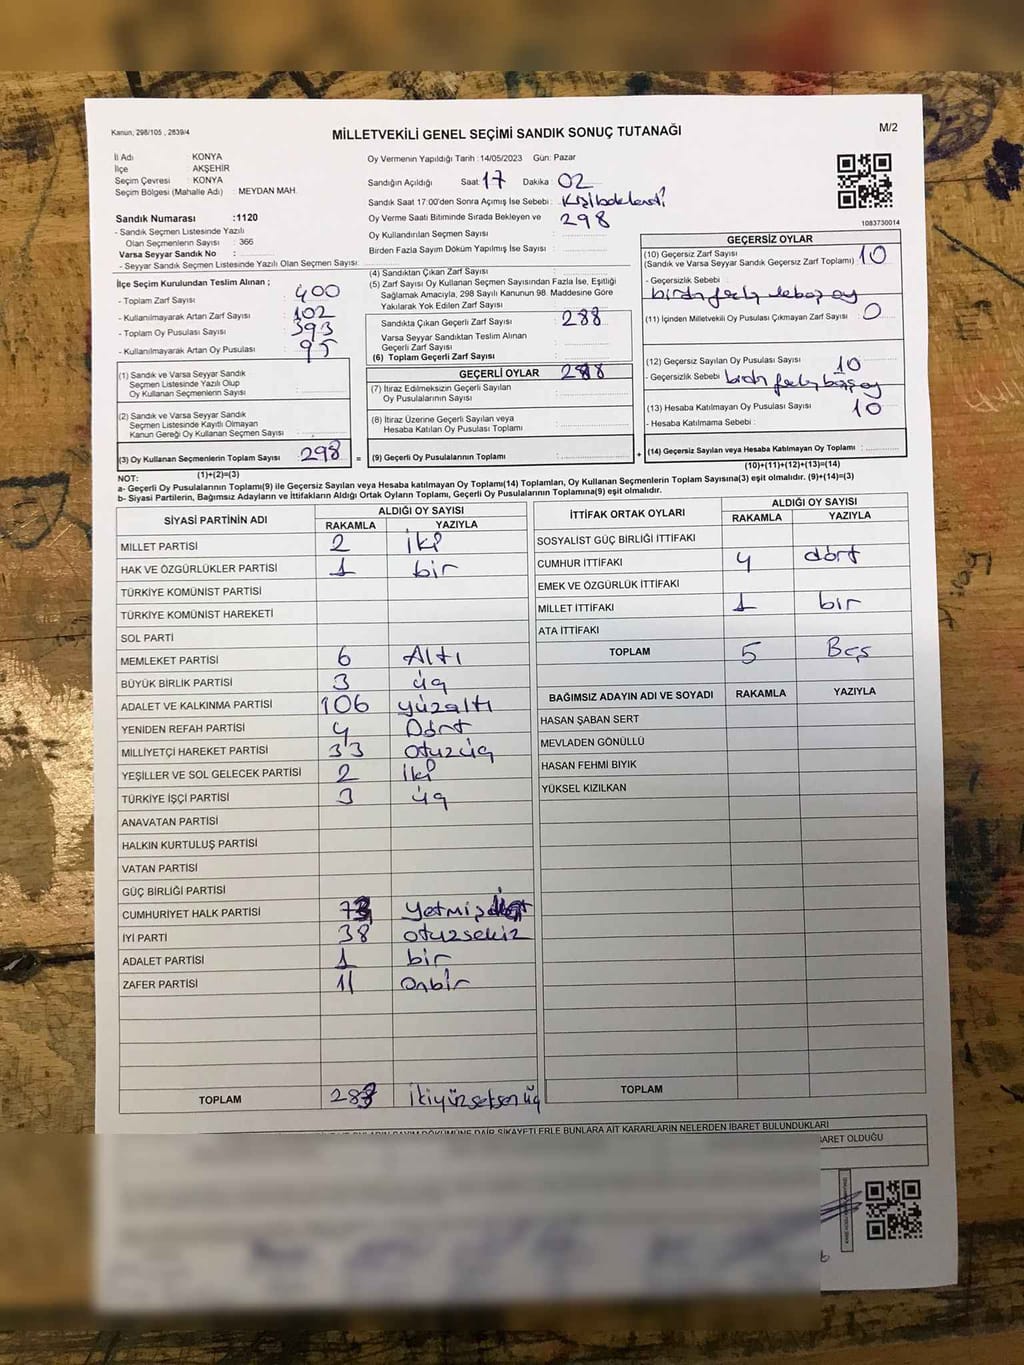 Kanun; 298/105 , 2839/4
MİLLETVEKİLİ GENEL SEÇİMİ SANDIK SONUÇ TUTANAĞI
M/2
İl Adı KONYA
İlçe AKŞEHİR
Seçim Çevresi : KONYA
Seçim Bölgesi (Mahalle Adı) : MEYDAN MAH.
Sandık Numarası :1120
- Sandık Seçmen Listesinde Yazılı
Olan Seçmenlerin Sayısı : 366
Varsa Seyyar Sandık No :
- Seyyar Sandık Seçmen Listesinde Yazılı Olan Seçmen Sayısı:
Oy Vermenin Yapıldığı Tarih :14/05/2023 Gün: Pazar
Sandığın Açıldığı Saat: 17 Dakika : 02
Sandık Saat 17:00'den Sonra Açımış İse Sebebi :
Oy Verme Saati Bitiminde Sırada Bekleyen ve 298
Oy Kullandırılan Seçmen Sayısı :
Birden Fazla Sayım Döküm Yapılmış İse Sayısı :
1083730014
İlçe Seçim Kurulundan Teslim Alınan ;
- Toplam Zarf Sayısı : 400
- Kullanılmayarak Artan Zarf Sayısı : 102
- Toplam Oy Pusulası Sayısı : 393
- Kullanılmayarak Artan Oy Pusulası : 95
(1) Sandık ve Varsa Seyyar Sandık
Seçmen Listesinde Yazılı Olup
Oy Kullanan Seçmenlerin Sayısı :
(2) Sandık ve Varsa Seyyar Sandık
Seçmen Listesinde Kayıtlı Olmayan
Kanun Gereği Oy Kullanan Seçmen Sayısı :
(3) Oy Kullanan Seçmenlerin Toplam Sayısı : 298
(1)+(2)=(3)
(4) Sandıktan Çıkan Zarf Sayısı :
(5) Zarf Sayısı Oy Kullanan Seçmen Sayısından Fazla İse, Eşitliği
Sağlamak Amacıyla, 298 Sayılı Kanunun 98. Maddesine Göre
Yakılarak Yok Edilen Zarf Sayısı :
Sandıkta Çıkan Geçerli Zarf Sayısı : 288
Varsa Seyyar Sandıktan Teslim Alınan
Geçerli Zarf Sayısı :
(6) Toplam Geçerli Zarf Sayısı :
GEÇERLİ OYLAR
(7) İtiraz Edilmeksizin Geçerli Sayılan
Oy Pusulalarının Sayısı :
(8) İtiraz Üzerine Geçerli Sayılan veya
Hesaba Katılan Oy Pusulası Toplamı :
= (9) Geçerli Oy Pusulalarının Toplamı :
GEÇERSİZ OYLAR
(10) Geçersiz Zarf Sayısı
(Sandık ve Varsa Seyyar Sandık Geçersiz Zarf Toplamı) : 10
- Geçersizlik Sebebi :
(11) İçinden Milletvekili Oy Pusulası Çıkmayan Zarf Sayısı : 0
(12) Geçersiz Sayılan Oy Pusulası Sayısı : 10
- Geçersizlik Sebebi
(13) Hesaba Katılmayan Oy Pusulası Sayısı : 10
- Hesaba Katılmama Sebebi :
+ (14) Geçersiz Sayılan veya Hesaba Katılmayan Oy Toplamı :
(10)+(11)+(12)+(13)=(14)
NOT:
a- Geçerli Oy Pusulalarının Toplamı(9) ile Geçersiz Sayılan veya Hesaba Katılmayan Oy Pusulası Toplamı(14) Toplamları, Oy Kullanan Seçmenlerin Toplam Sayısına(3) eşit olmalıdır. (9)+(14)=(3)
b- Siyasi Partilerin, Bağımsız Adayların ve İttifakların Aldığı Ortak Oyların Toplamı, Geçerli Oy Pusulalarının Toplamına(9) eşit olmalıdır.
SİYASİ PARTİNİN ADI ALDIĞI OY SAYISI
RAKAMLA YAZIYLA
MİLLET PARTİSİ 2 iki
HAK VE ÖZGÜRLÜKLER PARTİSİ 1 bir
TÜRKİYE KOMÜNİST PARTİSİ
TÜRKİYE KOMÜNİST HAREKETİ
SOL PARTİ
MEMLEKET PARTİSİ 6 Altı
BÜYÜK BİRLİK PARTİSİ 3 üç
ADALET VE KALKINMA PARTİSİ 106 yüzaltı
YENİDEN REFAH PARTİSİ 4 Dört
MİLLİYETÇİ HAREKET PARTİSİ 33 otuzüç
YEŞİLLER VE SOL GELECEK PARTİSİ 2 iki
TÜRKİYE İŞÇİ PARTİSİ 3 üç
ANAVATAN PARTİSİ
HALKIN KURTULUŞ PARTİSİ
VATAN PARTİSİ
GÜÇ BİRLİĞİ PARTİSİ
CUMHURİYET HALK PARTİSİ
İYİ PARTİ 38 otuzsekiz
ADALET PARTİSİ 1 bir
ZAFER PARTİSİ 11 onbir
TOPLAM ikiyüzseksenüç
İTTİFAK ORTAK OYLARI ALDIĞI OY SAYISI
RAKAMLA YAZIYLA
SOSYALİST GÜÇ BİRLİĞİ İTTİFAKI
CUMHUR İTTİFAKI 4 dört
EMEK VE ÖZGÜRLÜK İTTİFAKI
MİLLET İTTİFAKI 1 bir
ATA İTTİFAKI
TOPLAM 5 Beş
BAĞIMSIZ ADAYIN ADI VE SOYADI RAKAMLA YAZIYLA
HASAN ŞABAN SERT
MEVLADEN GÖNÜLLÜ
HASAN FEHMI BIYIK
YÜKSEL KIZILKAN
TOPLAM
ŞİKAYETLERLE BUNLARA AİT KARARLARIN NELERDEN İBARET BULUNDUKLARI
BARET OLDUĞU